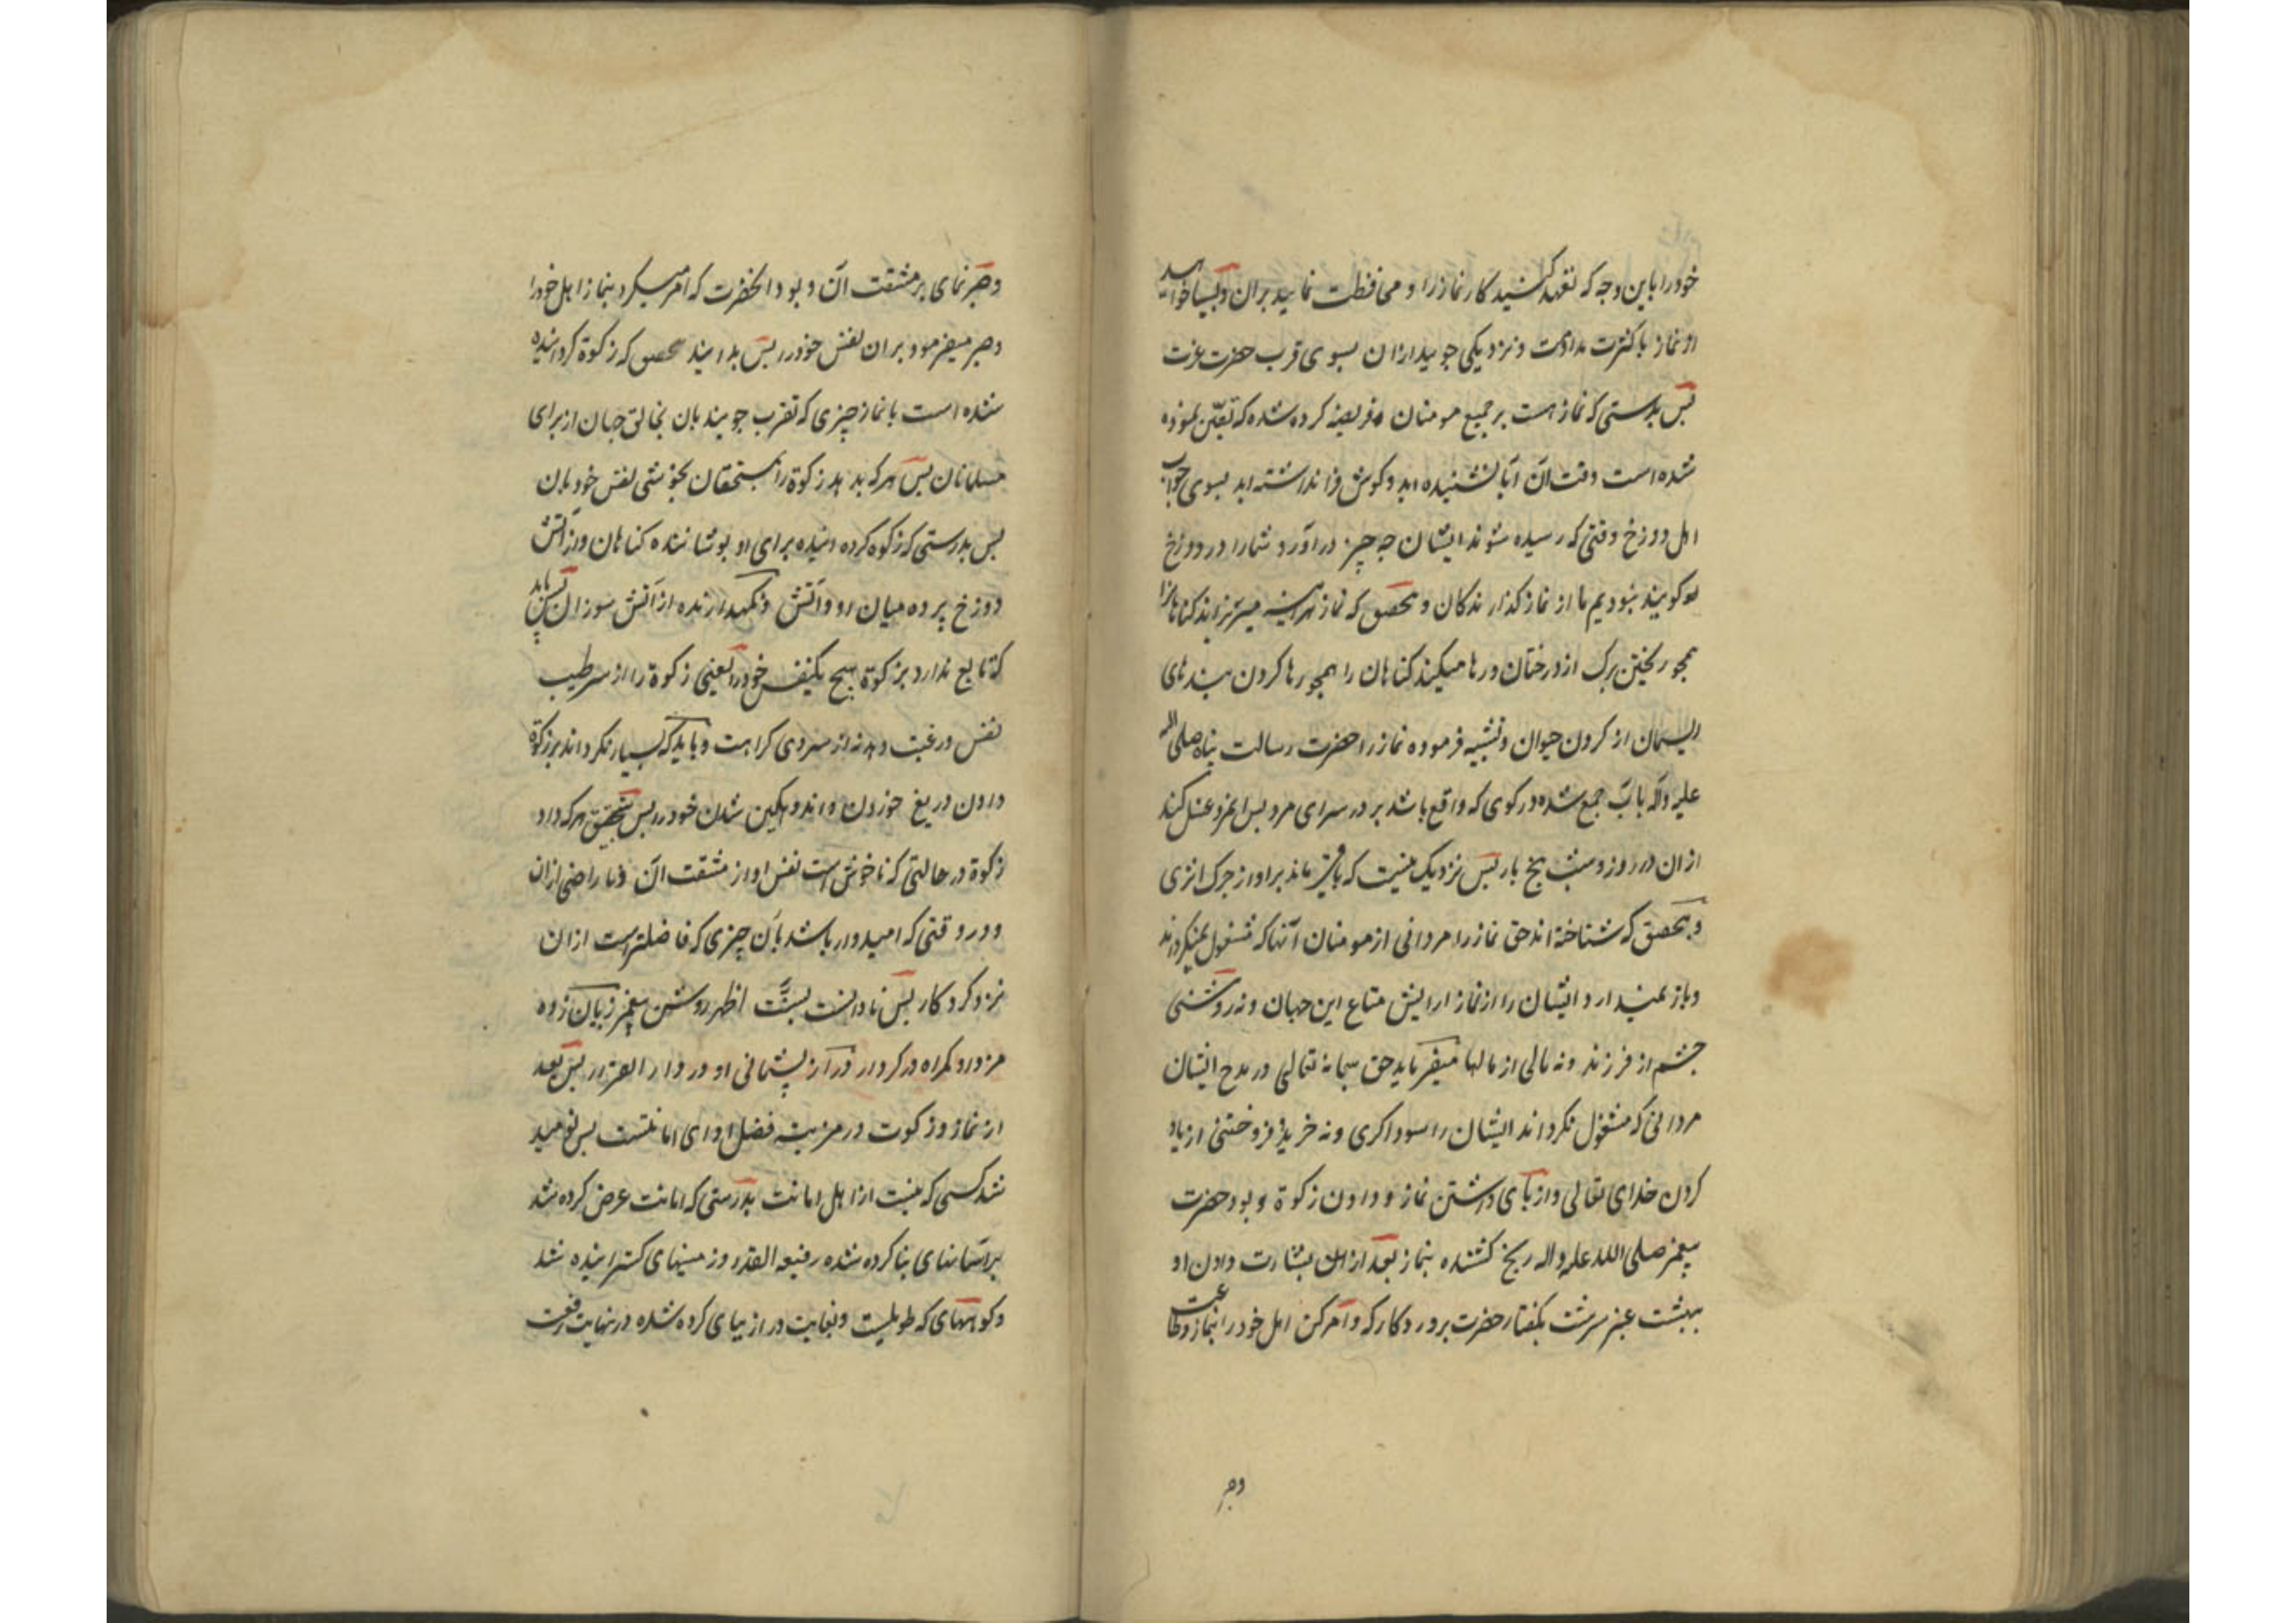 خود را باین وجه که تعهد کنید کار نماز را و محافظت نمایید بران و بسیار خواهید
او نماز با کثرت مداومت و نزدیکی جویید ازان بسوی قرب حضرت عزت
پس بدرستی که نماز هست بر جمیع مومنان فریضه کرده شده که تعیّن نموده
شده است وقت آن آیا نشنیده اید و کوش فرا نداشته اید بسوی جواب
اهل دوزخ وقتی که رسیده شوند ایشان چه چیز دراورد شما را در دوزخ
کویند نبودیم ما از نماز کذارندکان و بتحقیق که نماز هراینه میریزاند کناهانرا
همچو ریختن برک از درختان و رها میکند کناهان را همچو رها کردن بندهای
ریسمان از کردن حیوان و تشبیه فرموده نماز را حضرت رسالت پناه صلی الله
علیه وآله بآب جمع شده در کوی که واقع باشد بر در سرای مرد پس او غسل کند
ازان در روز و شب پنج بار پس نزدیک نیست که باقی ماند بر او از چرک اثری
و بتحقیق که شناخته اند حق نماز را مردانی از مومنان آنها که مشغول نمیکرداند
و باز نمیدارد ایشان را از نماز ارایش متاع این جهان و نه روشنی
چشم از فرزند و نه مالی از مالها میفرماید حق سبحانه تعالی در مدح ایشان
مردانی که مشغول نکرداند ایشان را سوداکری و نه خرید و فروختنی از یاد
کردن خدای تعالی و از بپای داشتن نماز و دادن زکوة و بود حضرت
پیغمبر صلی الله علیه واله رنج کشنده بنماز بعد از ان بشارت دادن او
ببهشت عنبر سرشت بکفتار حضرت پروردکار که و امر کن اهل خود را بنماز و طاعت
وصبر
وصبر نمای بر مشقت آن و بود انحضرت که امر میکرد بنماز اهل خود را
و صبر میفرمود بران نفس خود را پس بدانید بتحقیق که زکوة کردانیده
شده است با نماز چیزی که تقرب جویند بان بخالق جهان از برای
مسلمانان پس هر که بدهد زکوة را بمستحقان بخوشی نفس خود بان
پس بدرستی که زکوة کردانیده برای او پوشاننده کناهان و از آتش
دوزخ پرده میان او و آتش و نکهدارنده از آتش سوزان پس باید
که تابع ندارد بزکوة هیچ یک نفس خود را یعنی زکوة را از سر طیب
نفس و رغبت دهد نه از سر وی کراهت و باید که بسیار نکرداند بر زکوة
دادن دریغ خوردن و اندوهکین شدن خود را پس بتحقیق هر که داد
زکوة در حالتی که ناخوش است نفس او از مشقت آن و نا راضی ازان
و در وقتی که امیدوار باشد بآن چیزی که فاضلتر است ازان
نزد کردکار پس نادانست بسنّت اطهر روشن پیغمبر زیان زده
مزد او کمراه در کردار دراز پشیمانی او در دار القرار پس بعد
از نماز و زکوت در مزیت فضل ادای امانتست پس نومید
شد کسی که نیست از اهل امانت بدرستی که امانت عرض کرده شد
بر آسمانهای بنا کرده شده رفیعه القدر و زمینهای کسترانیده شد
و کوههای که طویلست و بغایت درازیهای کرده شده در نهایت رفعت